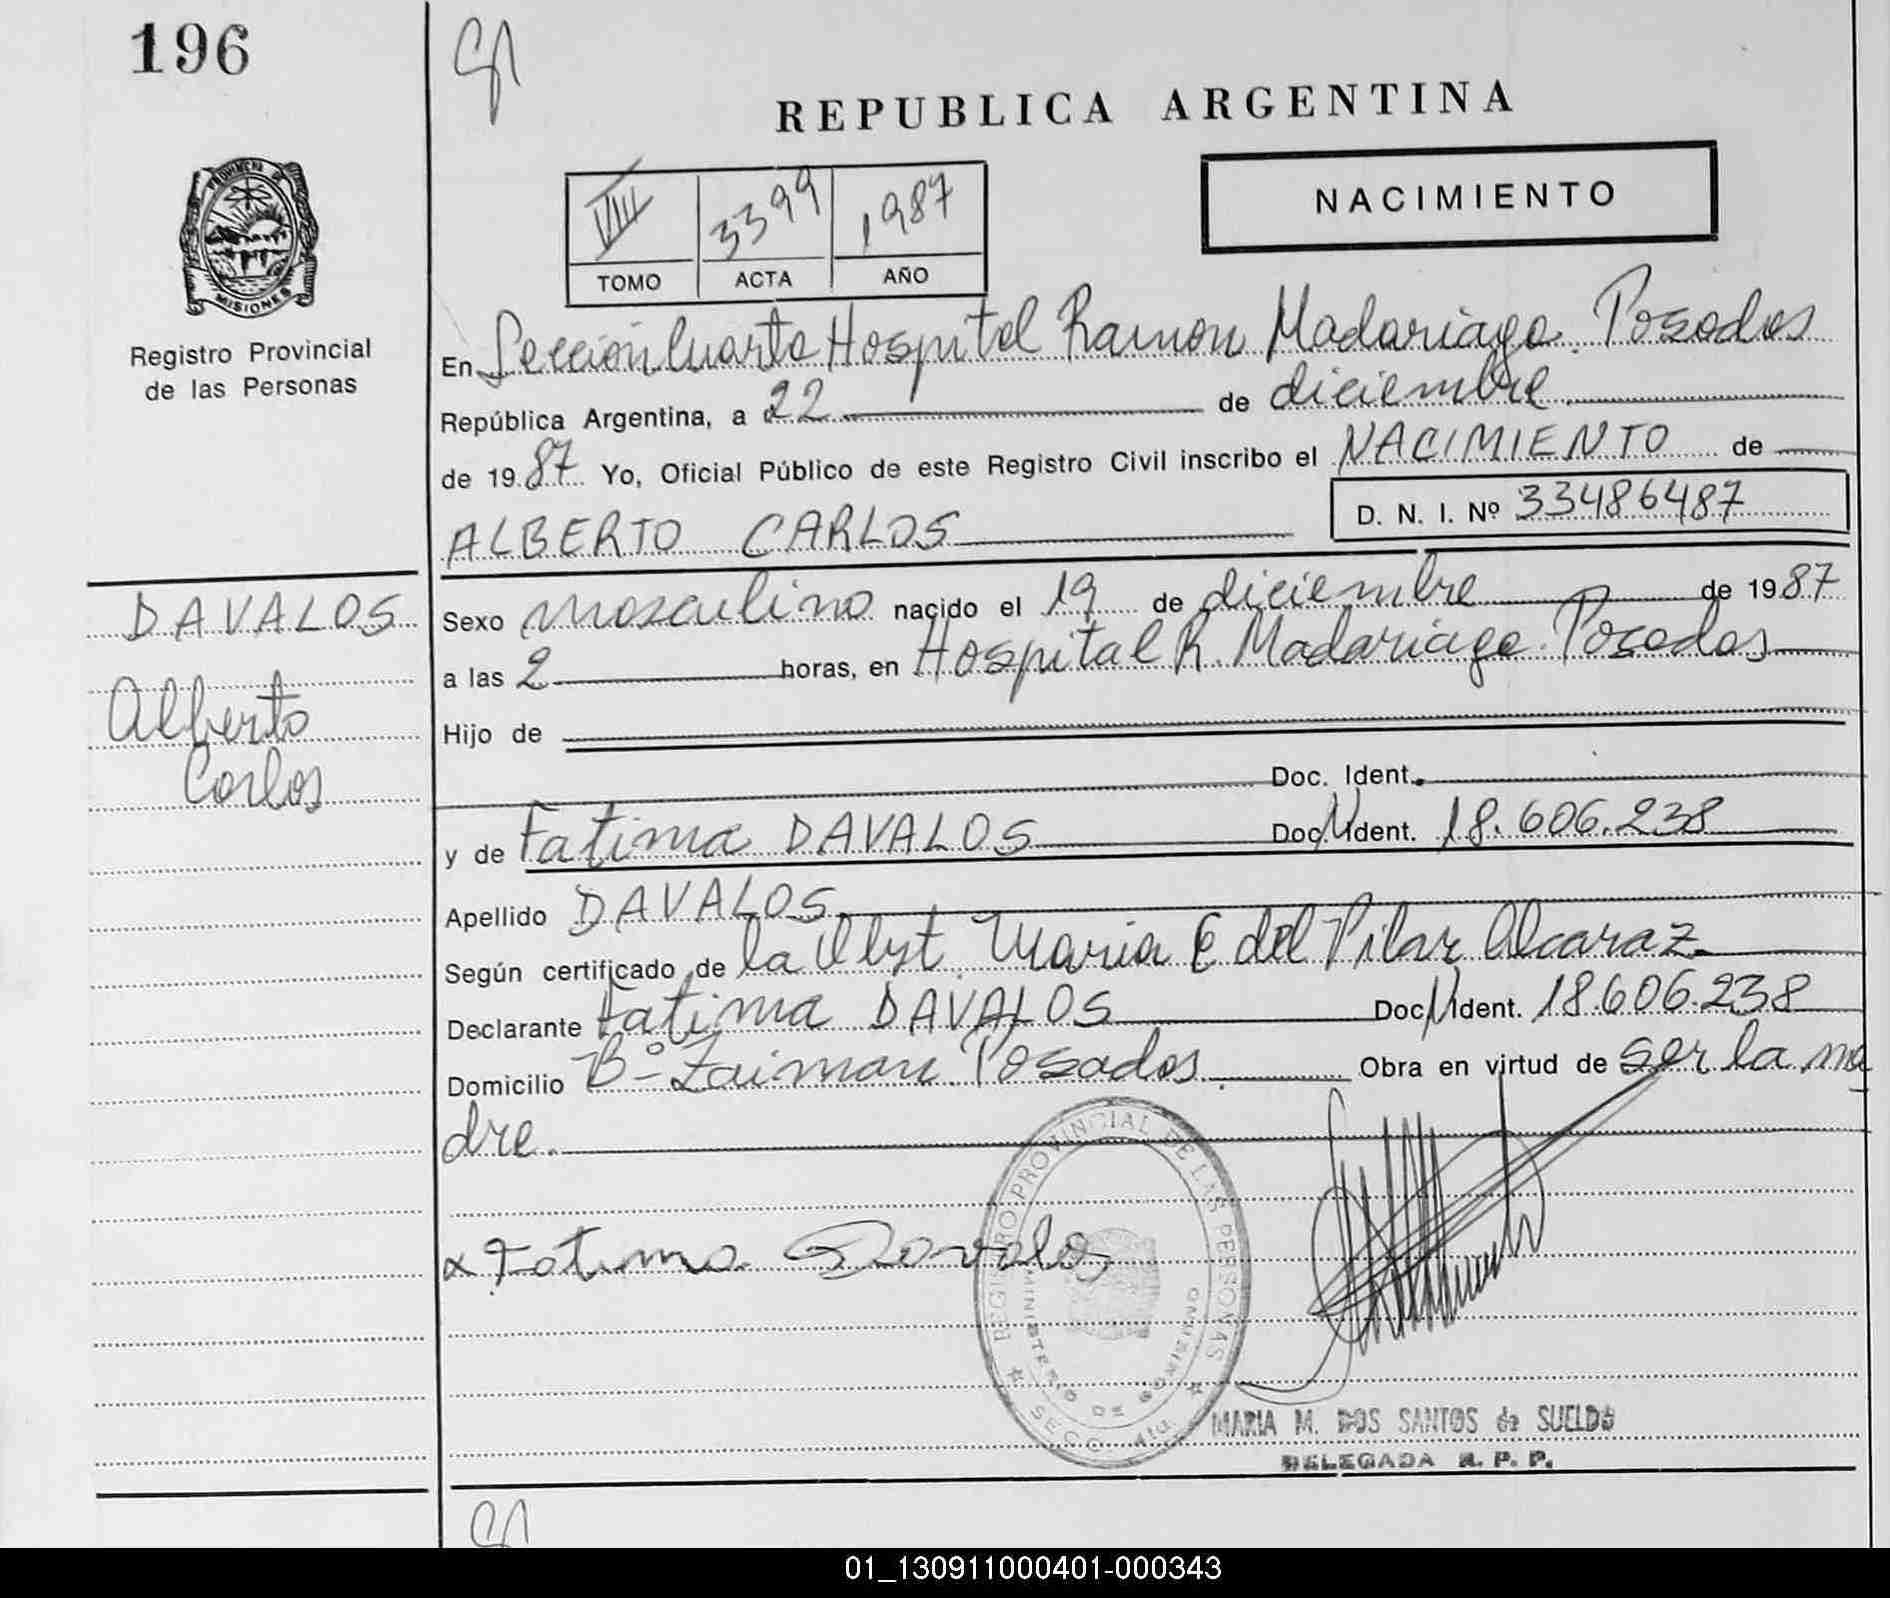 196
REPUBLICA ARGENTINA
NACIMIENTO
VIII 3399 1987
TOMO ACTA AÑO
PROVINCIA D
MISIONES
Registro Provincial
de las Personas
En Sección Cuarta Hospital Ramon Madariaga. Posadas
República Argentina, a 22 de diciembre
de 1987 Yo, Oficial Público de este Registro Civil inscribo el NACIMIENTO de
D. N. I. Nº 33486487
ALBERTO CARLOS
DAVALOS
Alberto
Carlos
Sexo masculino nacido el 19 de diciembre de 1987
a las 2 horas, en Hospital R. Madariaga. Posadas
Hijo de
Doc. Ident.
y de Fatima DAVALOS Doc. Ident. 18.606.238
Apellido DAVALOS
Según certificado de la Obst. Maria E del Pilar Alcaraz
Declarante Fatima DAVALOS Doc. Ident. 18.606.238
Domicilio Bº Zaiman Posadas. Obra en virtud de ser la ma
dre.
x Fatima Davalos
REGISTRO PROVINCIAL DE LAS PERSONAS
MINISTERIO DE GOBIERNO
SECC. 4ta.
MARIA M. DOS SANTOS de SUELDO
DELEGADA R. P. P.
01_130911000401-000343